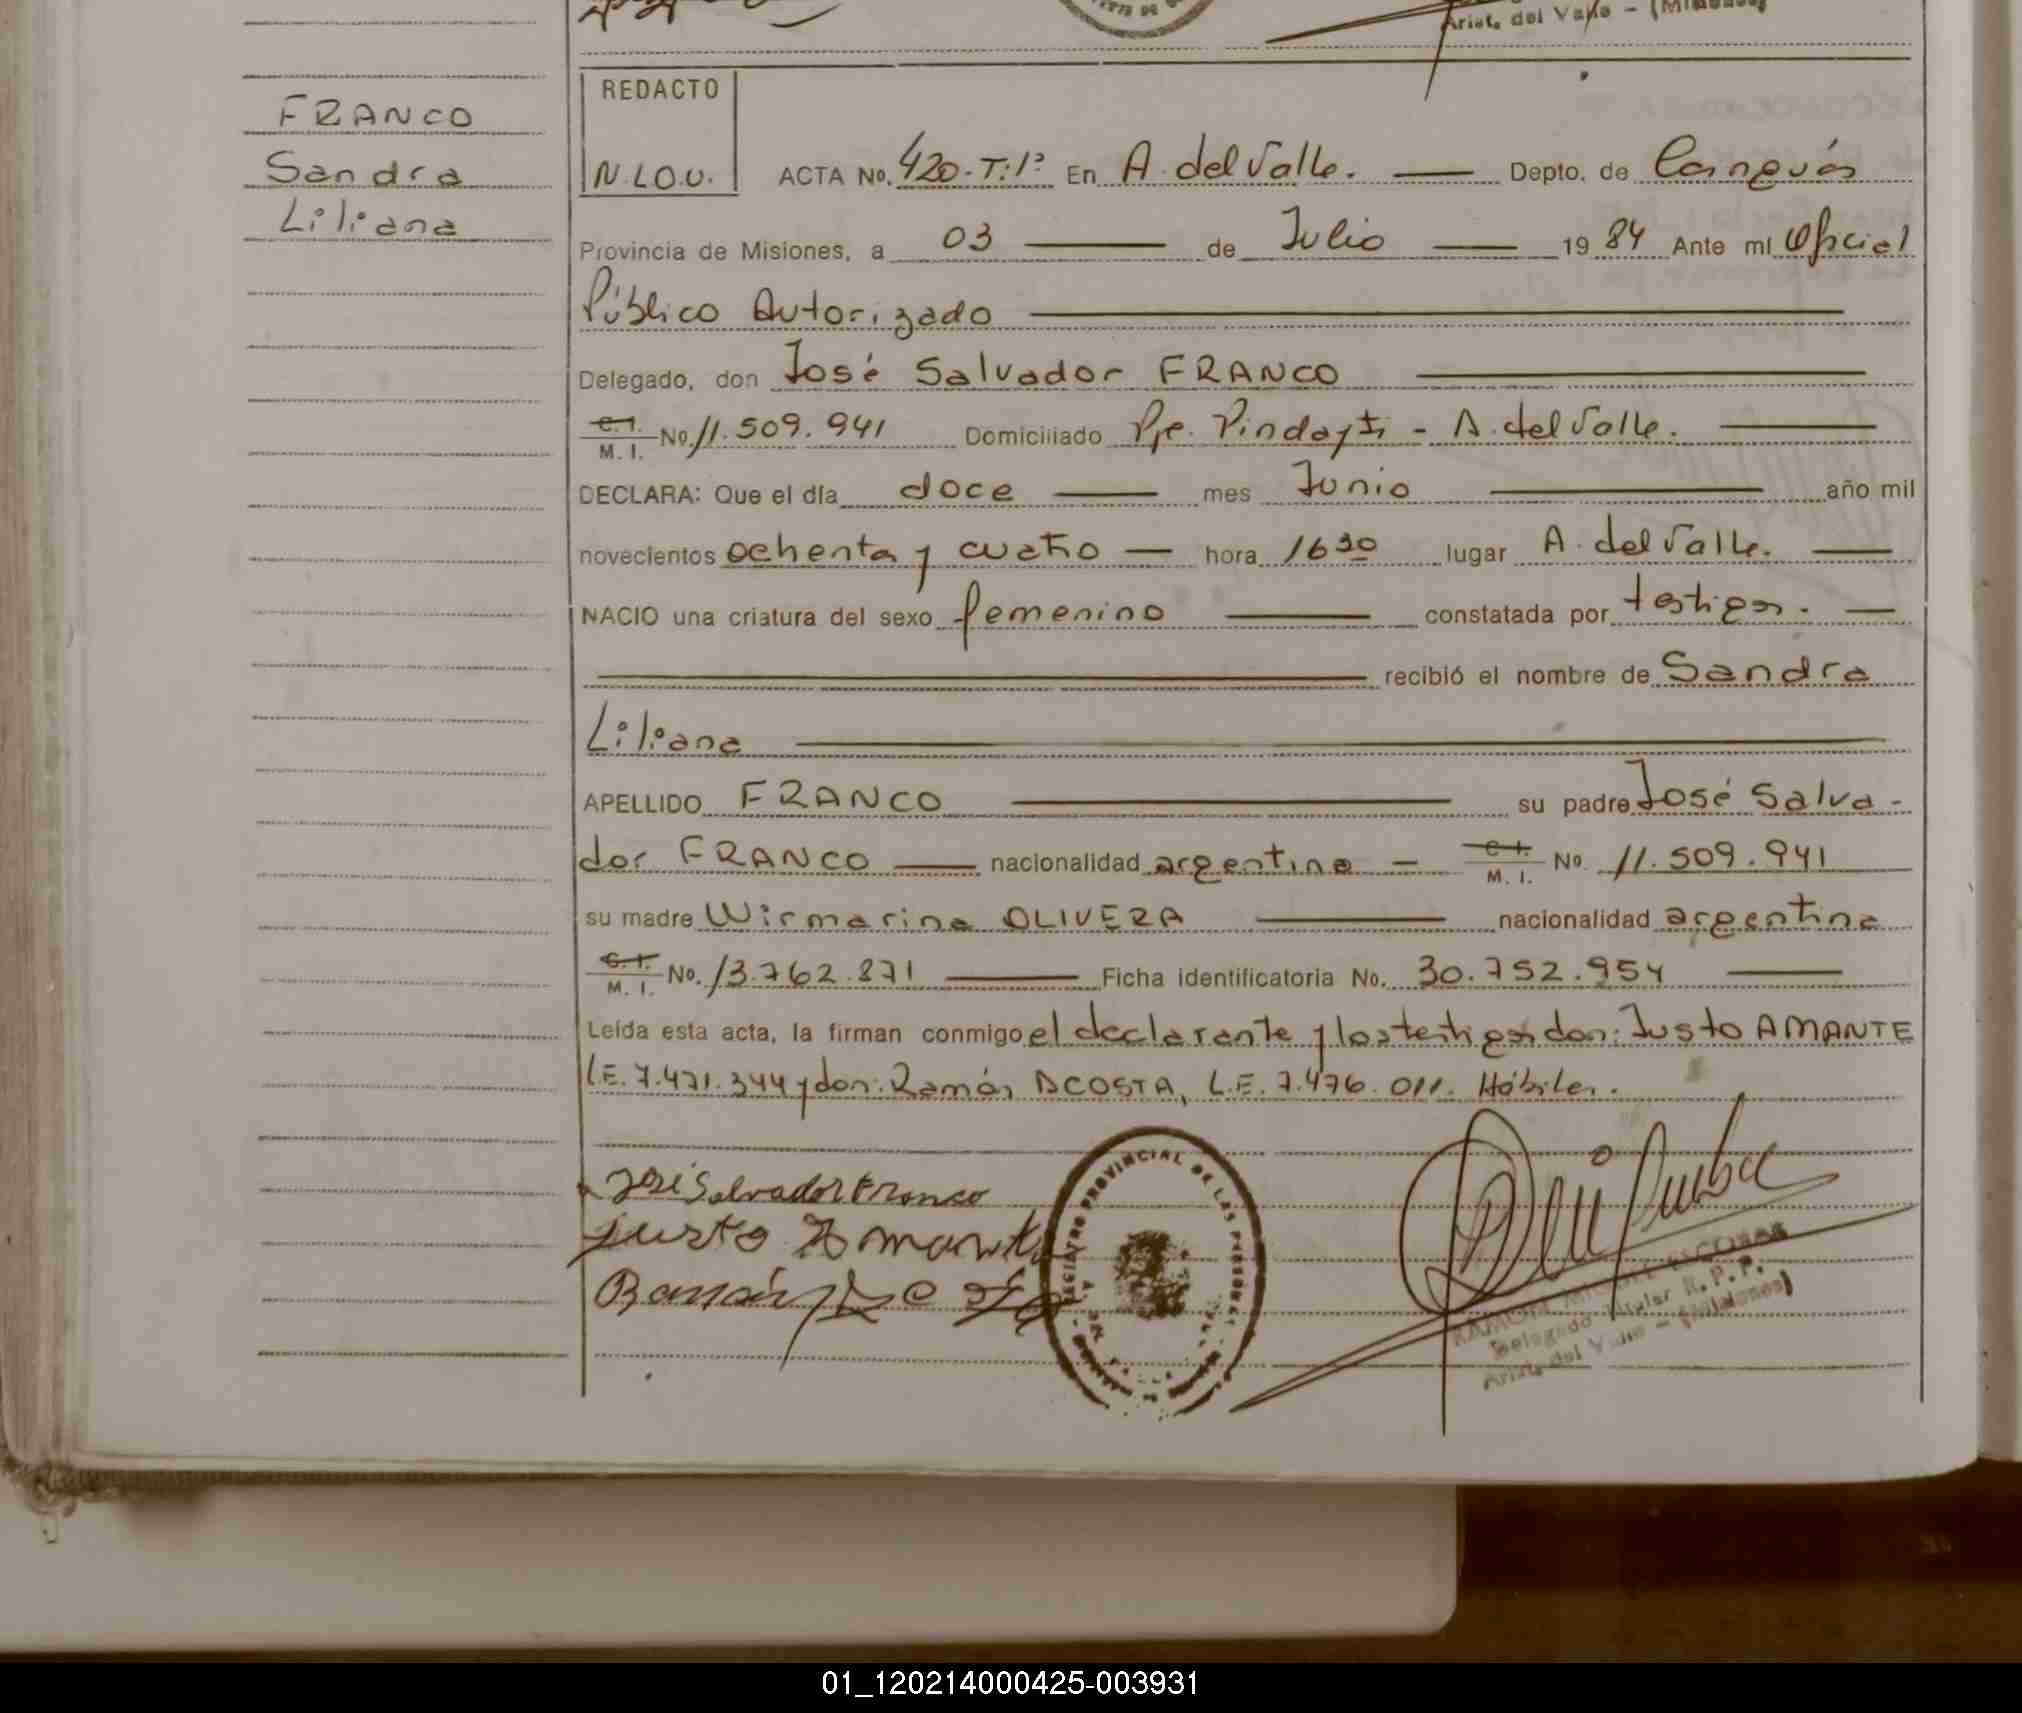 Arist. del Valle - (Misiones)
FRANCO
Sandra
Liliana
REDACTO
N.L.O.U.
ACTA No. 420-T:1º En A. del Valle. Depto. de Cainguás
Provincia de Misiones, a 03 de Julio 19 84 Ante mí Oficial
Público Autorizado
Delegado, don José Salvador FRANCO
C. I. M. I. No. 11.509.941 Domiciliado Pje. Pindayti - A. del Valle.
DECLARA: Que el día doce mes Junio año mil
novecientos ochenta y cuatro hora 1630 lugar A. del Valle.
NACIO una criatura del sexo femenino constatada por testigos.
recibió el nombre de Sandra
Liliana
APELLIDO FRANCO su padre José Salva-
dor FRANCO nacionalidad argentina - C. I. M. I. No. 11.509.941
su madre Wirmarina OLIVERA nacionalidad argentina
C. I. M. I. No. 13.762.871 Ficha identificatoria No. 30.752.954
Leída esta acta, la firman conmigo el declarante y los testigos don: Justo AMANTE
L.E. 7.471.344 y don: Ramón ACOSTA, L.E. 7.476.011. Hábiles.
José Salvador Franco
Justo Amante
Ramón
REGISTRO PROVINCIAL DE LAS PERSONAS
RAMON ESCOBAR
Delegado Titular R. P. P.
Arist. del Valle - (Misiones)
01_120214000425-003931